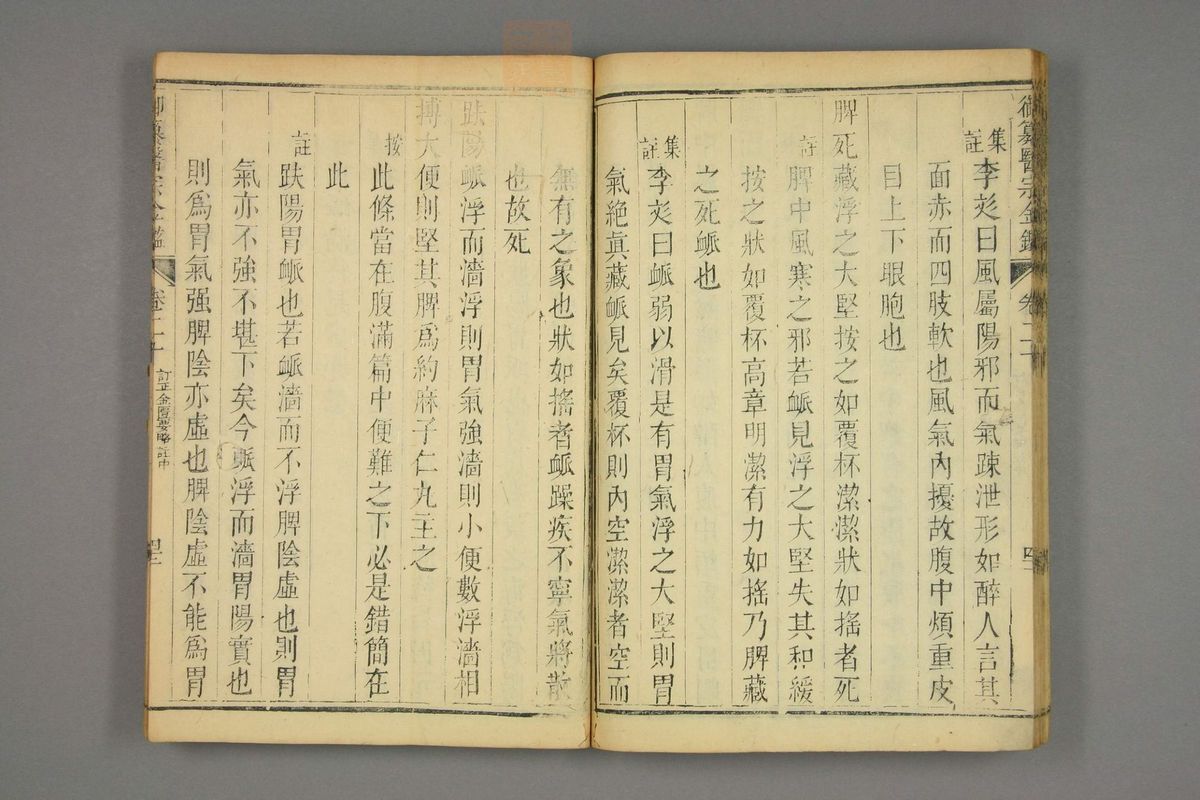 御纂醫宗金鑑 卷二十
集註李彣曰風屬陽邪而氣疎泄形如醉人言其
面赤而四肢軟也風氣內擾故腹中煩重皮
目上下眼胞也
脾死藏浮之大堅按之如覆杯潔潔狀如搖者死
註脾中風寒之邪若䘑見浮之大堅失其和緩
按之狀如覆杯高章明潔有力如搖乃脾藏
之死䘑也
集註李彣曰䘑弱以滑是有胃氣浮之大堅則胃
氣絶眞藏䘑見矣覆杯則內空潔潔者空而
無有之象也狀如搖者䘑躁疾不寧氣將散
也故死
趺陽䘑浮而濇浮則胃氣強濇則小便數浮濇相
搏大便則堅其脾爲約麻子仁丸主之
按此條當在腹滿篇中便難之下必是錯簡在
此
註趺陽胃䘑也若䘑濇而不浮脾陰虛也則胃
氣亦不強不堪下矣今䘑浮而濇胃陽實也
則爲胃氣强脾陰亦虛也脾陰虛不能爲胃
御纂醫宗金鑑 卷二十 訂正金匱要略註中